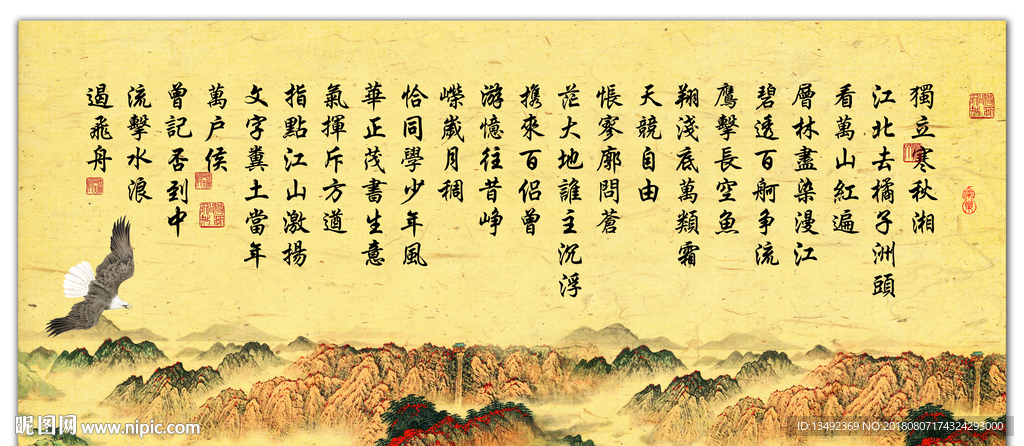 獨立寒秋湘
江北去橘子洲頭
看萬山紅遍
層林盡染漫江
碧透百舸争流
鷹擊長空魚
翔淺底萬類霜
天競自由
悵寥廓問蒼
茫大地誰主沉浮
携來百侶曾
游憶往昔崢
嶸歲月稠
恰同學少年風
華正茂書生意
氣揮斥方遒
指點江山激揚
文字糞土當年
萬户侯
曾記否到中
流擊水浪
遏飛舟
昵图网 www.nipic.com
ID:13492369 NO:20180807174324293000